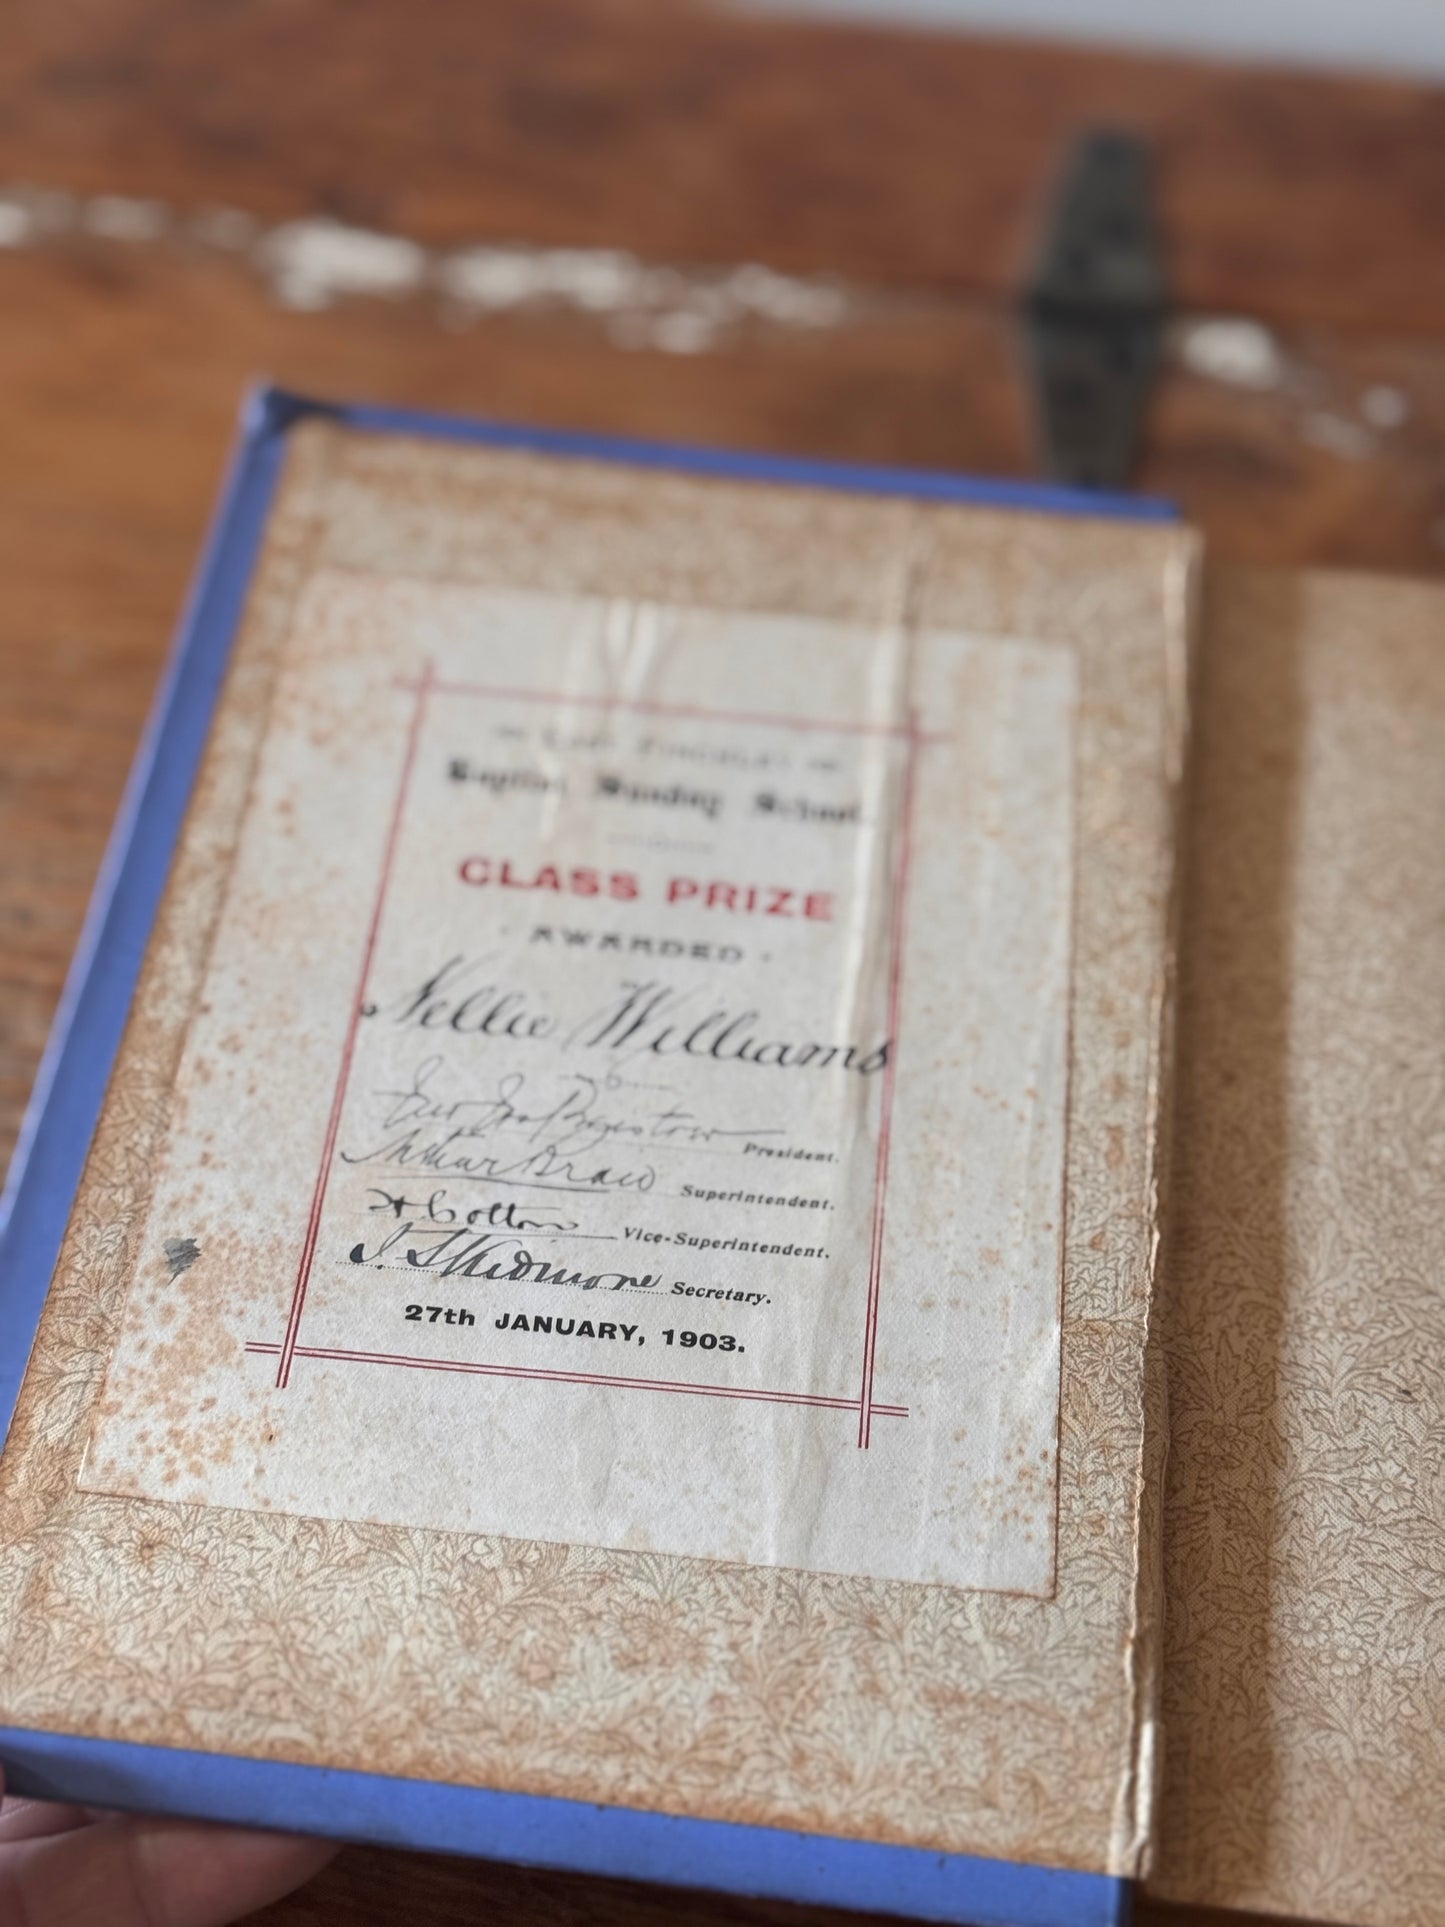 East Finchley
Baptist Sunday School.
CLASS PRIZE
· AWARDED ·
Nellie Williams
President.
Arthur Braid Superintendent.
Vice-Superintendent.
J. Skidmore Secretary.
27th JANUARY, 1903.